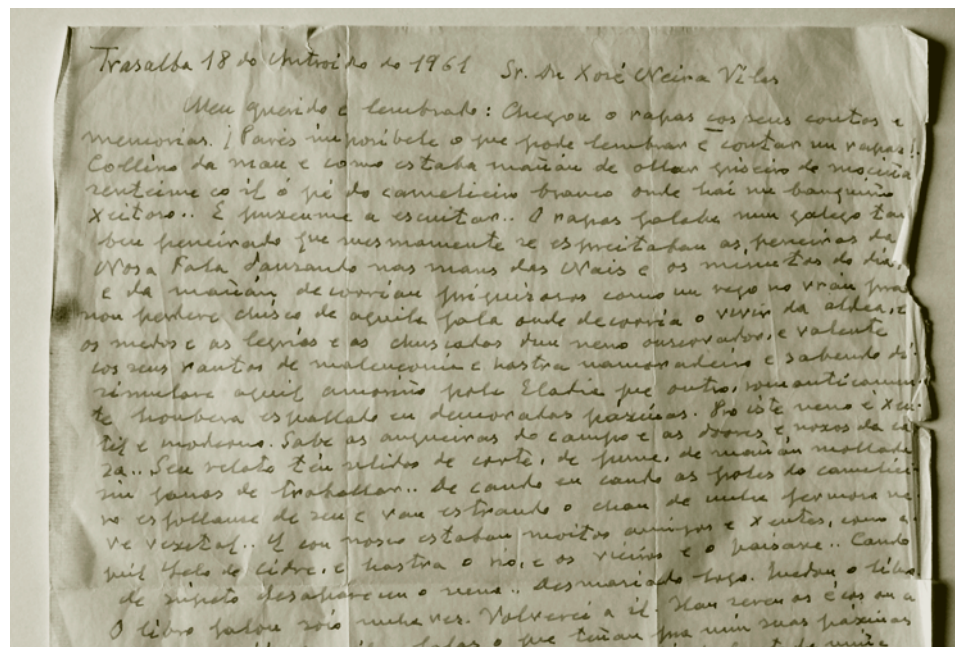 Trasalba 18 do Outroiro do 1961 Sr. Dn Xosé Neira Vilas
Meu querido e lembrado: Chegou o rapas cos seus contos e
memorias. ¡Parés imposíbele o que pode lembrar e contar un rapas!.
Collino da man e como estaba mañán de ollar griseiro de mociña
senteime co il ó pé do camelieiro branco onde hai un banquiño
xeitoso.. E puxenme a escuitar.. O rapas falaba nun galego tan
ben peneirado que mesmamente se espreitaban as peneiras da
Nosa Fala danzando nas mans das Nais e os minutos do día,
e da mañán decorrían priguizosos como un rego no vran pra
non perdere chisco de aquila fala onde decorría o vivir da aldea, e
os medos e as legrías e as chuscadas dun neno ouservador, e valente
cos seus vantos de malenconía e hastra namoradeiro e sabendo di-
simulare aquil amoriño pola Eladia que outro, romanticamen-
te houbera espallado en demoradas páxinas. Pro iste neno é xen-
til e moderno. Sabe as angueiras do campo e as doores e noxos da ca-
za.. Seu relato tén relidos de corte, de fume, de mañán mollada
sin ganas de traballar.. De cando en cando as follas do cameliei-
ro esfollanse de seu e van estrando o chan de unha fermosa ne-
ve vexetal.. E con nosco estaban moitos amigos e xentes, como a-
quil Lelo de Cidre, e hastra o río, e os viciños e o paisaxe.. Cando
de súpeto desapareceu o neno.. Desmariado logo. Quedou o libro
O libro falou sóio unha ves. Volverei a il.
o que tiñan pra min suas páxinas